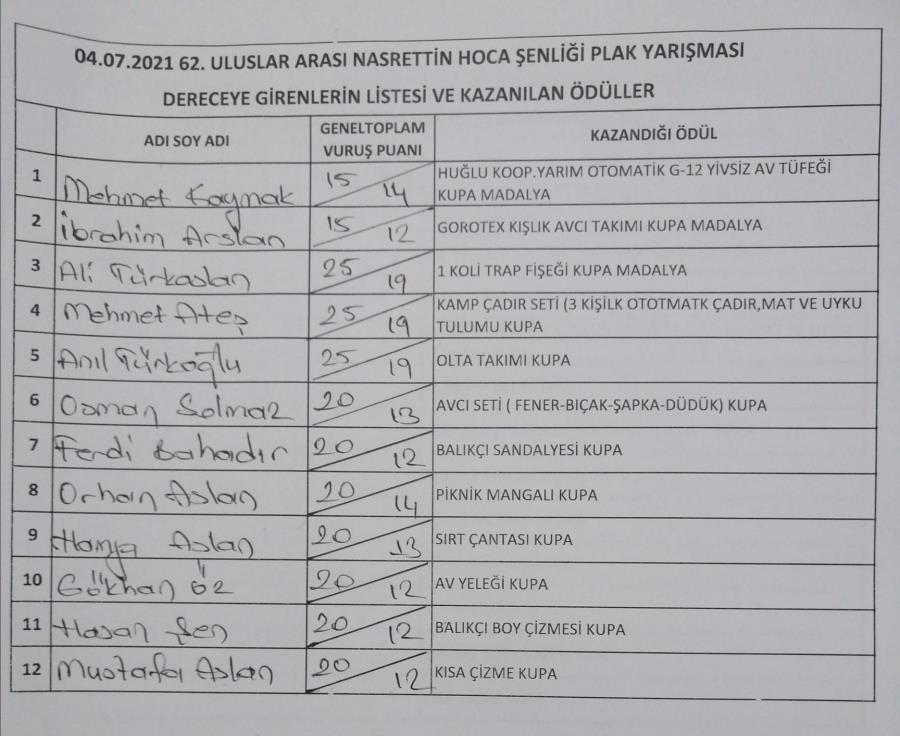 04.07.2021 62. ULUSLAR ARASI NASRETTİN HOCA ŞENLİĞİ PLAK YARIŞMASI
DERECEYE GİRENLERİN LİSTESİ VE KAZANILAN ÖDÜLLER
ADI SOY ADI GENELTOPLAM VURUŞ PUANI KAZANDIĞI ÖDÜL
1 Mehmet Kaymak 15/14 HUĞLU KOOP.YARIM OTOMATİK G-12 YİVSİZ AV TÜFEĞİ
KUPA MADALYA
2 İbrahim Arslan 15/12 GOROTEX KIŞLIK AVCI TAKIMI KUPA MADALYA
3 Ali Türkaslan 25/19 1 KOLİ TRAP FİŞEĞİ KUPA MADALYA
4 Mehmet Ateş 25/19 KAMP ÇADIR SETİ (3 KİŞİLK OTOTMATK ÇADIR,MAT VE UYKU
TULUMU KUPA
5 Anıl Türkoğlu 25/19 OLTA TAKIMI KUPA
6 Osman Solmaz 20/13 AVCI SETİ ( FENER-BIÇAK-ŞAPKA-DÜDÜK) KUPA
7 Ferdi Bahadır 20/12 BALIKÇI SANDALYESİ KUPA
8 Orhan Aslan 20/14 PİKNİK MANGALI KUPA
9 Hamza Aslan 20/13 SIRT ÇANTASI KUPA
10 Gökhan Öz 20/12 AV YELEĞİ KUPA
11 Hasan Şen 20/12 BALIKÇI BOY ÇİZMESİ KUPA
12 Mustafa Aslan 20/12 KISA ÇİZME KUPA